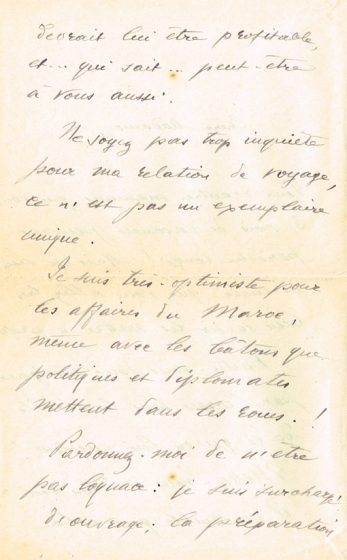 devrait lui être profitable,
et... qui sait... peut-être
à vous aussi.
Ne soyez pas trop inquiète
pour ma relation de voyage,
ce n'est pas un exemplaire
unique.
Je suis très-optimiste pour
les affaires du Maroc,
même avec les bâtons que
politiques et diplomates
mettent dans les roues.!
Pardonnez-moi de n'être
pas loquace: je suis surchargé
d'ouvrage; la préparation